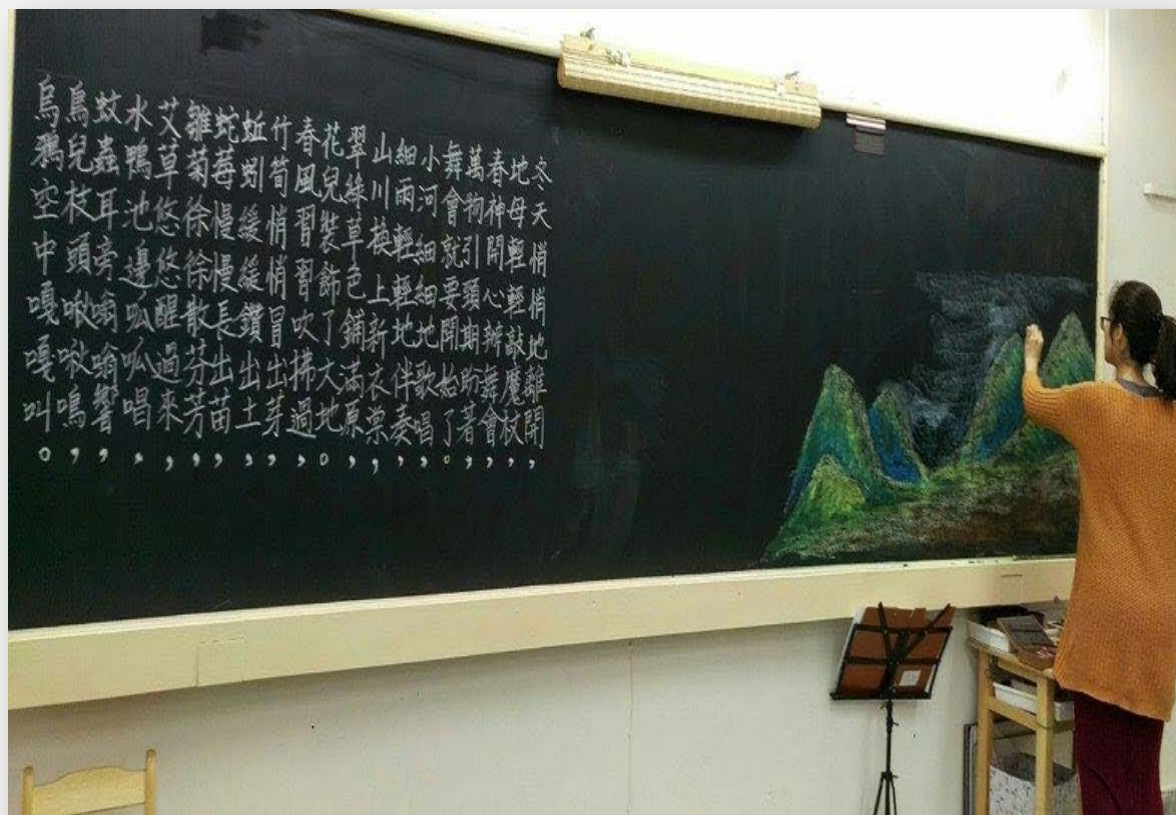 冬天悄悄地離開，
地母輕輕敲魔杖，
春神開心辦舞會，
萬物引頭期盼著，
舞會就要開始了。
小河細細地歌唱，
細雨輕輕地伴奏，
山川換上新衣裳，
翠綠草色鋪滿原，
花兒裝飾了大地。
春風習習吹拂過，
竹筍悄悄冒出芽，
蚯蚓緩緩鑽出土，
蛇莓慢慢長出苗，
雛菊徐徐散芬芳，
艾草悠悠醒過來，
水鴨池邊呱呱唱，
蚊蟲耳旁嗡嗡響，
鳥兒枝頭啾啾鳴，
烏鴉空中嘎嘎叫。